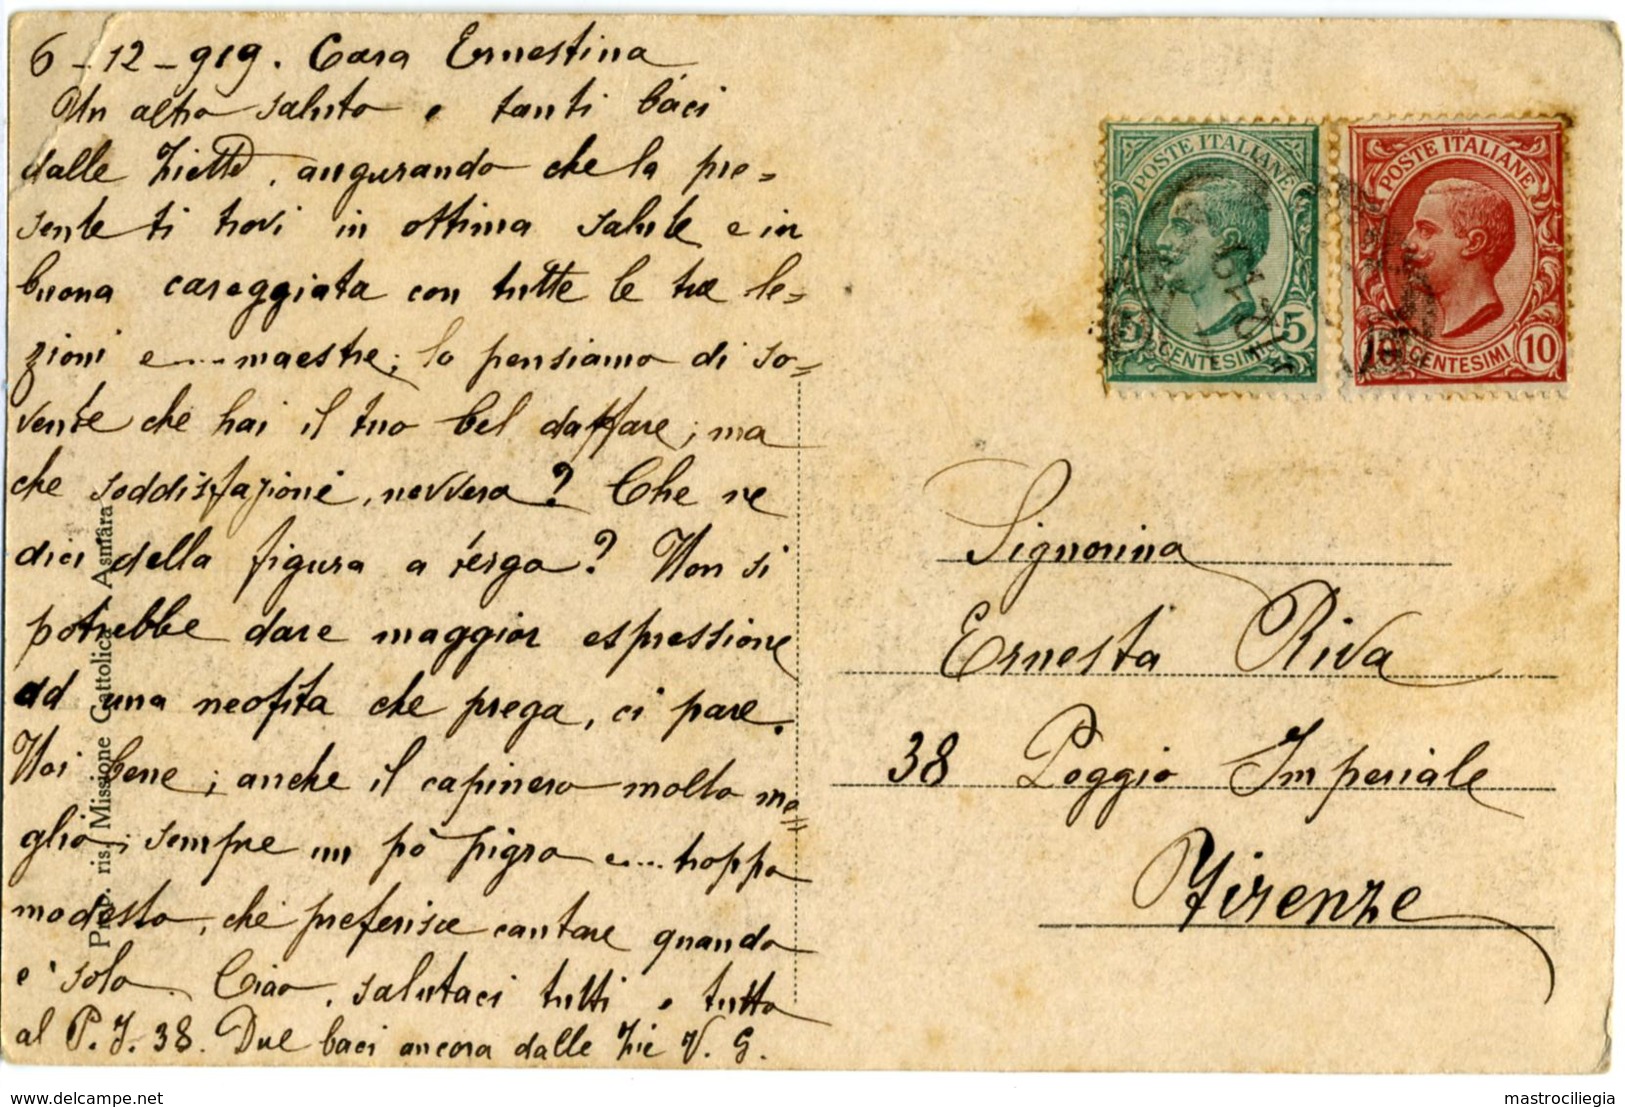 6-12-919. Cara Ernestina
Un altro saluto e tanti baci
dalle Ziette, augurando che la pre=
sente ti trovi in ottima salute e in
buona careggiata con tutte le tue le=
zioni e.... maestre; lo pensiamo di so=
vente che hai il tuo bel daffare; ma
che soddisfazioni, nevvero? Che ne
dici della figura a tergo? Non si
potrebbe dare maggior espressione
ad una neofita che prega, ci pare.
Noi bene; anche il capinero molto me=
glio; sempre un pò pigro e.... troppo
modesto, chè preferisce cantare quando
e' solo. Ciao, salutaci tutti e tutto
al P. I. 38. Due baci ancora dalle Zie V. G.
Prop. ris. Missione Cattolica Asmara
POSTE ITALIANE
5 CENTESIMI 5
POSTE ITALIANE
10 CENTESIMI 10
12 19
Signorina
Ernesta Riva
38 Poggio Imperiale
Firenze
mastrociliegia
delcampe.net